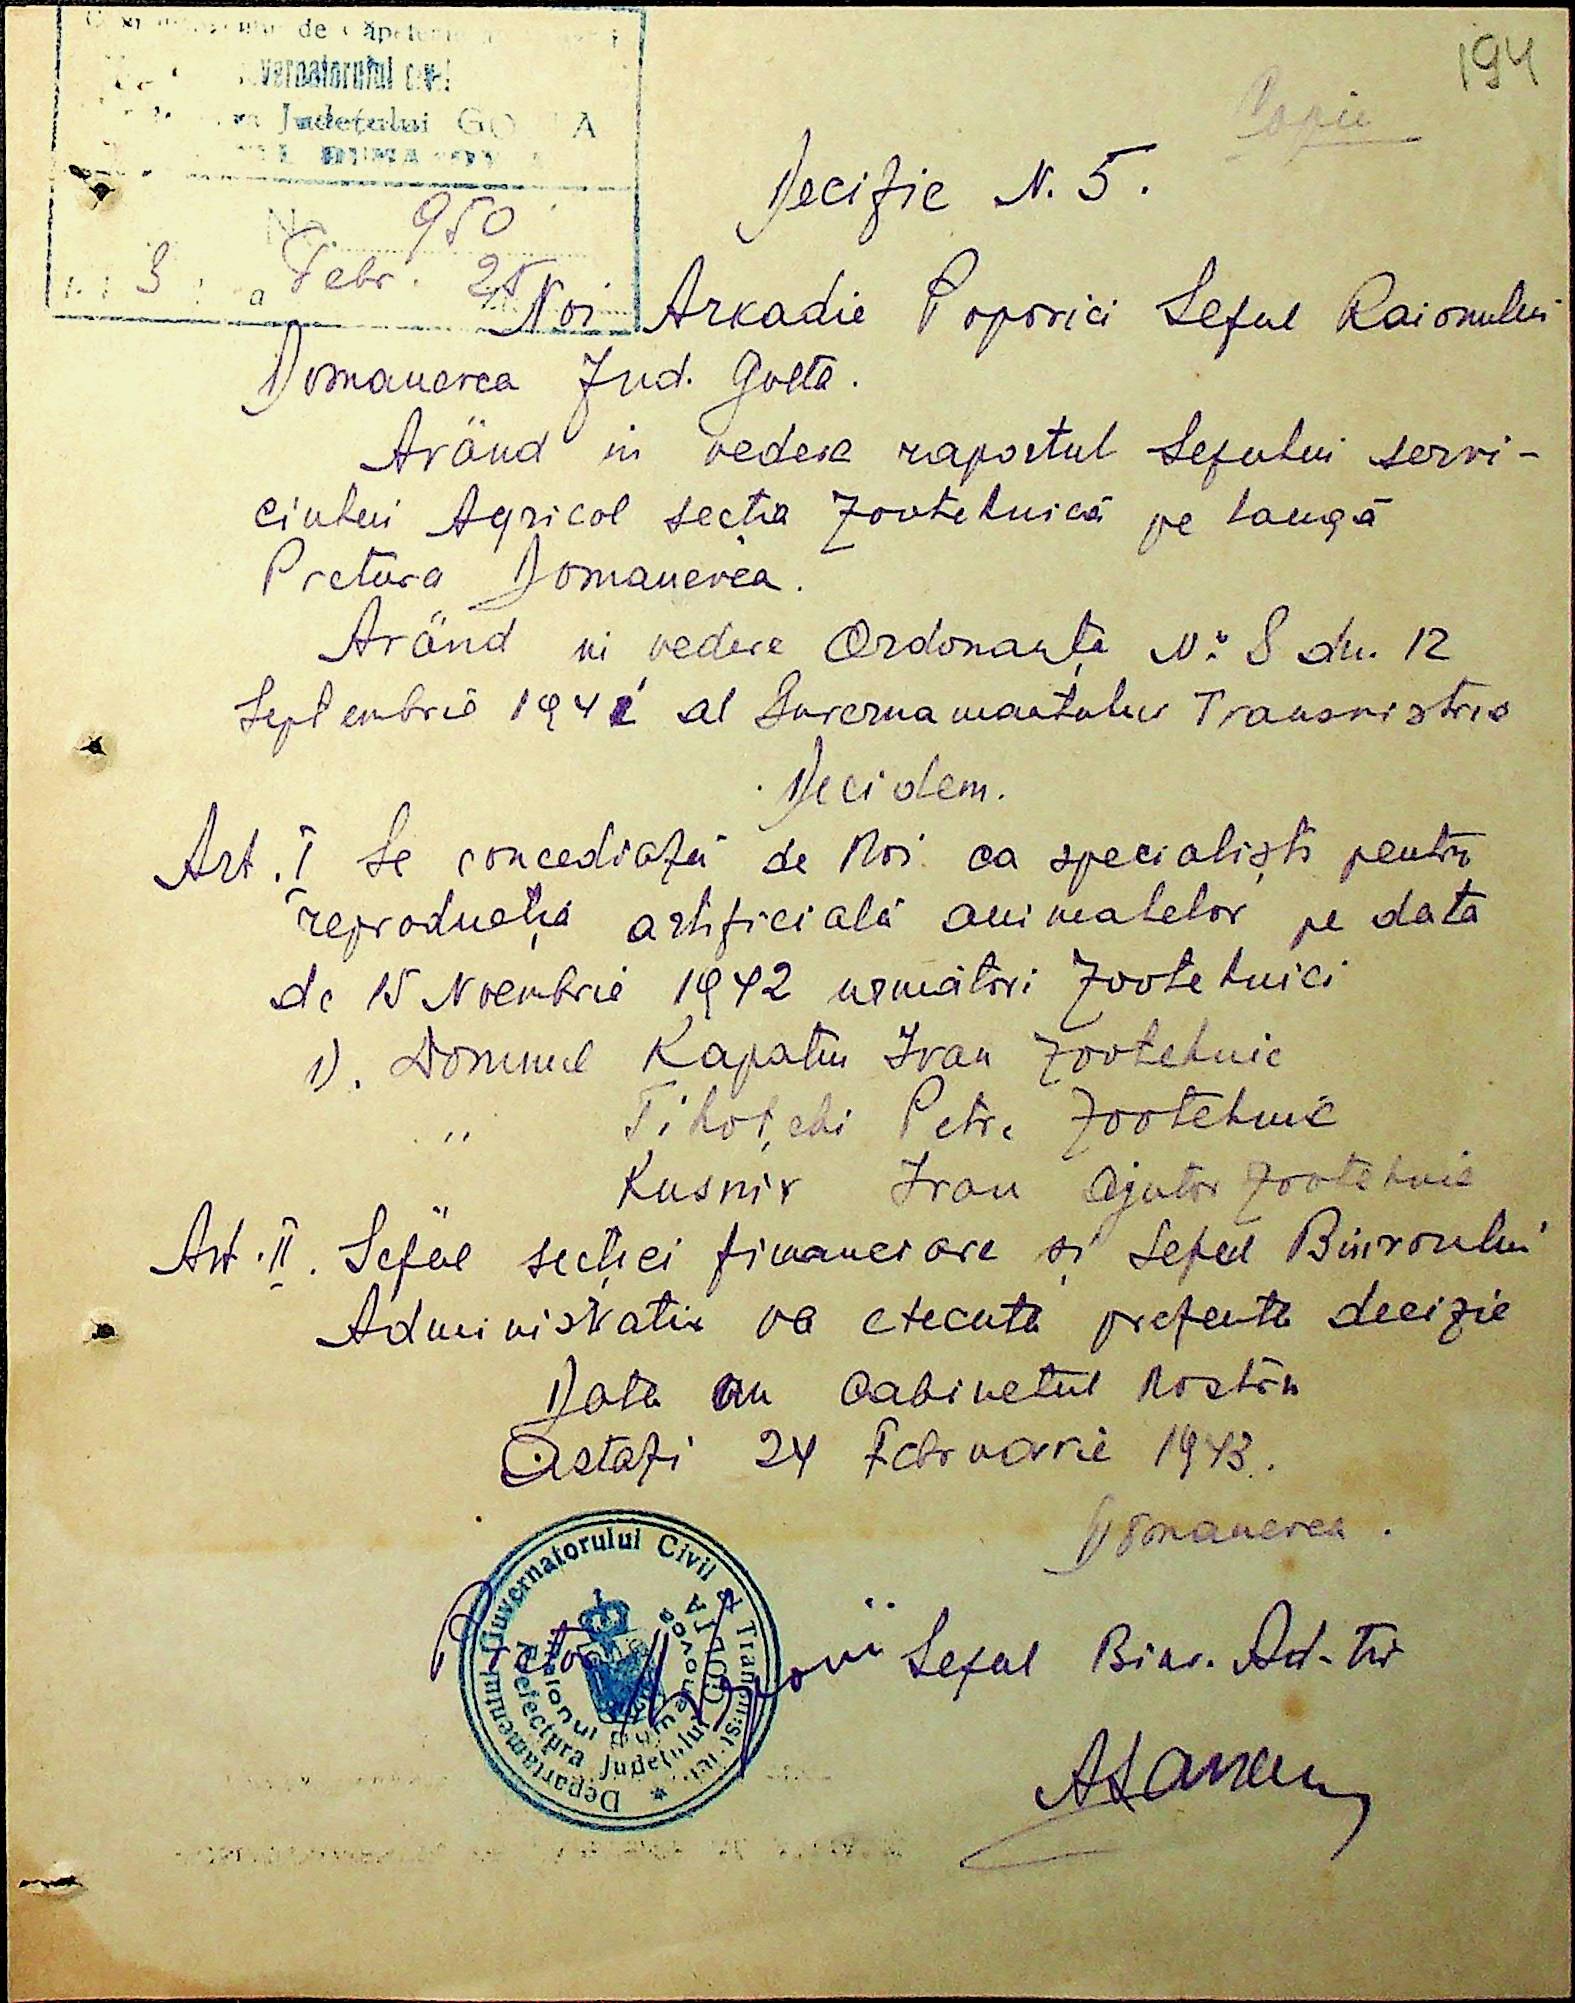 194
Copie
de
Guvernatorului civil
Județului GOLTA
No. 950
3 a Febr. 25
Decizie N. 5.
Noi Arkadie Popovici Seful Raionului
Domanevca Jud. Golta.
Avänd in vedere raportul Sefului servi-
ciului Agricol secția Zootehnică pe langă
Pretura Domanevca.
Avänd in vedere Ordonanța No. 8 din 12
Septembrie 1941 al Guvernamantului Transnistria
Decidem.
Art. I Se concediază de Noi ca specialiști pentru
reproducția artificială animalelor pe data
de 15 Noembrie 1942 următori Zootehnici
1). Domnul Kapatin Ivan Zootehnic
" Tihoțchi Petre Zootehnic
Kusnir Ivan Ajutor Zootehnic
Art. II. Seful secției financiare și Seful Biuroului
Administrativ va executa prezenta decizie
Data in Cabinetul Nostru
Astazi 24 Februarie 1943.
Domanevca.
Pretor Popovici Seful Biur. Ad-tiv
Departamentul Guvernatorului Civil al Transnistriei
Prefectura Județului GOLTA
Raionul Domanevca